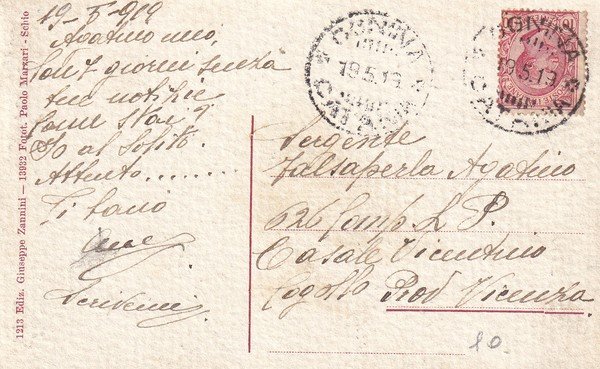 19-5-919
Agatino mio,
Son 7 giorni senza
tue notizie
Come stai?
Io al solito.
Attento........
Ti bacio
Scrivemi
Sergente
Falsaperla Agatino
626 Comp L P.
Casale Vicentino
Cogollo Prov Vicenza
10
OGNINA
19.5.19
CATANIA
OGNINA
19.5.19
CATANIA
10
1213 Ediz. Giuseppe Zannini — 13922 Fotot. Paolo Marzari - Schio